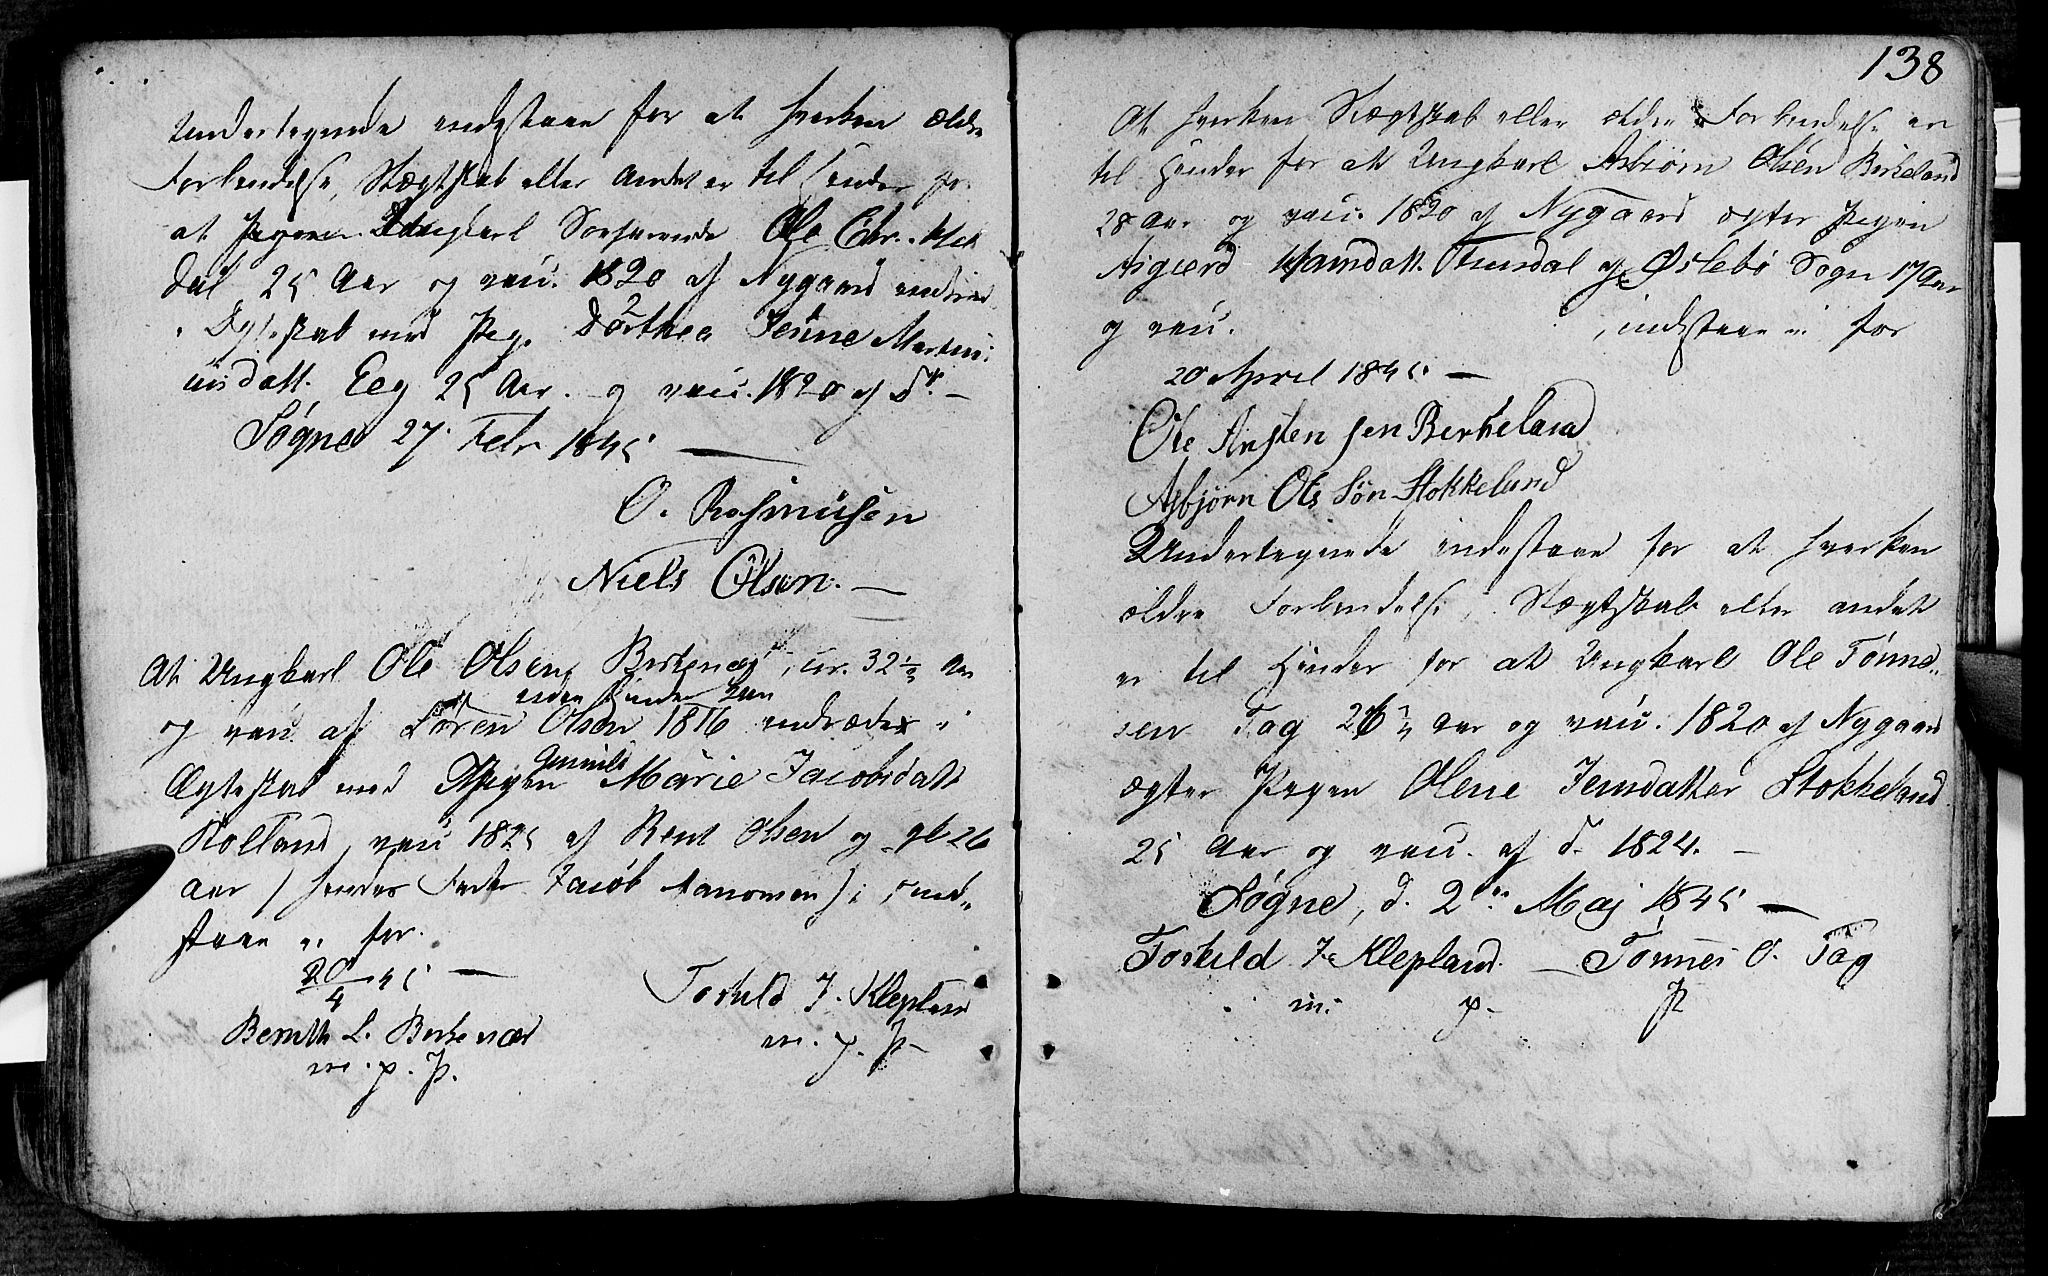 Undertegnede indestaae for at hverken ældre
Forbindelse, Slægtskab eller Andet er til Hinder for
at Ungkarl Søefarende Ole Chr.
dal 25 Aar og vac. 1820 af Nygaard indtræde
i Egteskab med Pig. Dorthea Jenine Martini
usdatt. Eeg 25 Aar. og vac. 1820 af d.º –
Søgne 27. Febr 1845 —
O. Rasmusen
Niels Olsen. —
At Ungkarl Ole Olsen Birkenæs, 32 ½ Aar
og vac af Søren Olsen 1816 indtræder i
Ægteskab med Pigen Gunnild Marie Jacobsdatt
Holland, vac 1825 af Bent Olsen og gl 26
aar (hendes Fader Jacob ) ind-
staae vi for.
20/4 45 —
Bernth L. Birkenæs
m. p. P.
Torkild J. Klepland
m. p. P.
138
At hverken Slægtskab eller ældre Forbindelse er
til Hinder for at Ungkarl Asbiørn Olsen Birkeland
28 Aar og vac. 1820 af Nygaard ægter Pigen
Asgierd Trædal af Øslebø Sogn 17 Aar
og vac. , indestaae vi for
20 April 1845. —
Ole Ansten sen Berkeland
Asbjørn Ols Søn Stokkeland
Undertegnede indestaae for at hverken
ældre Forbindelse, Slægtskab eller andet
er til Hinder for at Ungkarl Ole Tønne-
sen Tag 26 ½ Aar og vac. 1820 af Nygaard
ægter Pigen Olene Jensdatter Stokkeland
25 Aar og vac. af d. 1824. —
Søgne, d. 2den Maj 1845 —
Torkild J. Klepland. — Tønnes O. Tag
m. p. P